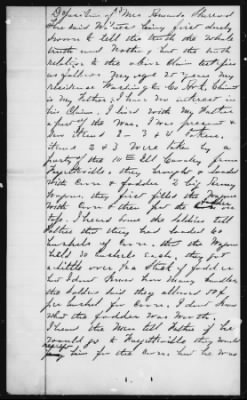 Deposition of Mrs Amanda
the said Mrs being first duly
sworn to tell the truth the whole
truth and nothing but the truth
relative to the above Claim testifies
as follows My age 25 years My
residence Washington Co Ark. Claimant
is My Father; I have no interest in
his Claim. I lived with My Father
a part of the War. I was present &
saw items 2 - 3 & 4 taken,
items 2 & 3 were taken by a
party of the 10th Ill Cavalry from
Fayetteville, they caught & loaded
with Corn & fodder 2 big Army
Wagons, they first filled the Wagons
with Corn & then put the
top. I heard some the Soldiers tell
Father that they had loaded 60
bushels of Corn. that the Wagons
held 30 bushels each, they got
a little over, in a Stack of fodder
but I dont Know how Many bundles
the Soldiers said they allowed 50¢
per bushel for Corn. I dont Know
what the fodder was Worth.
I heard the Men tell Father if he
would go to Fayetteville they would
him for the Corn, but he was